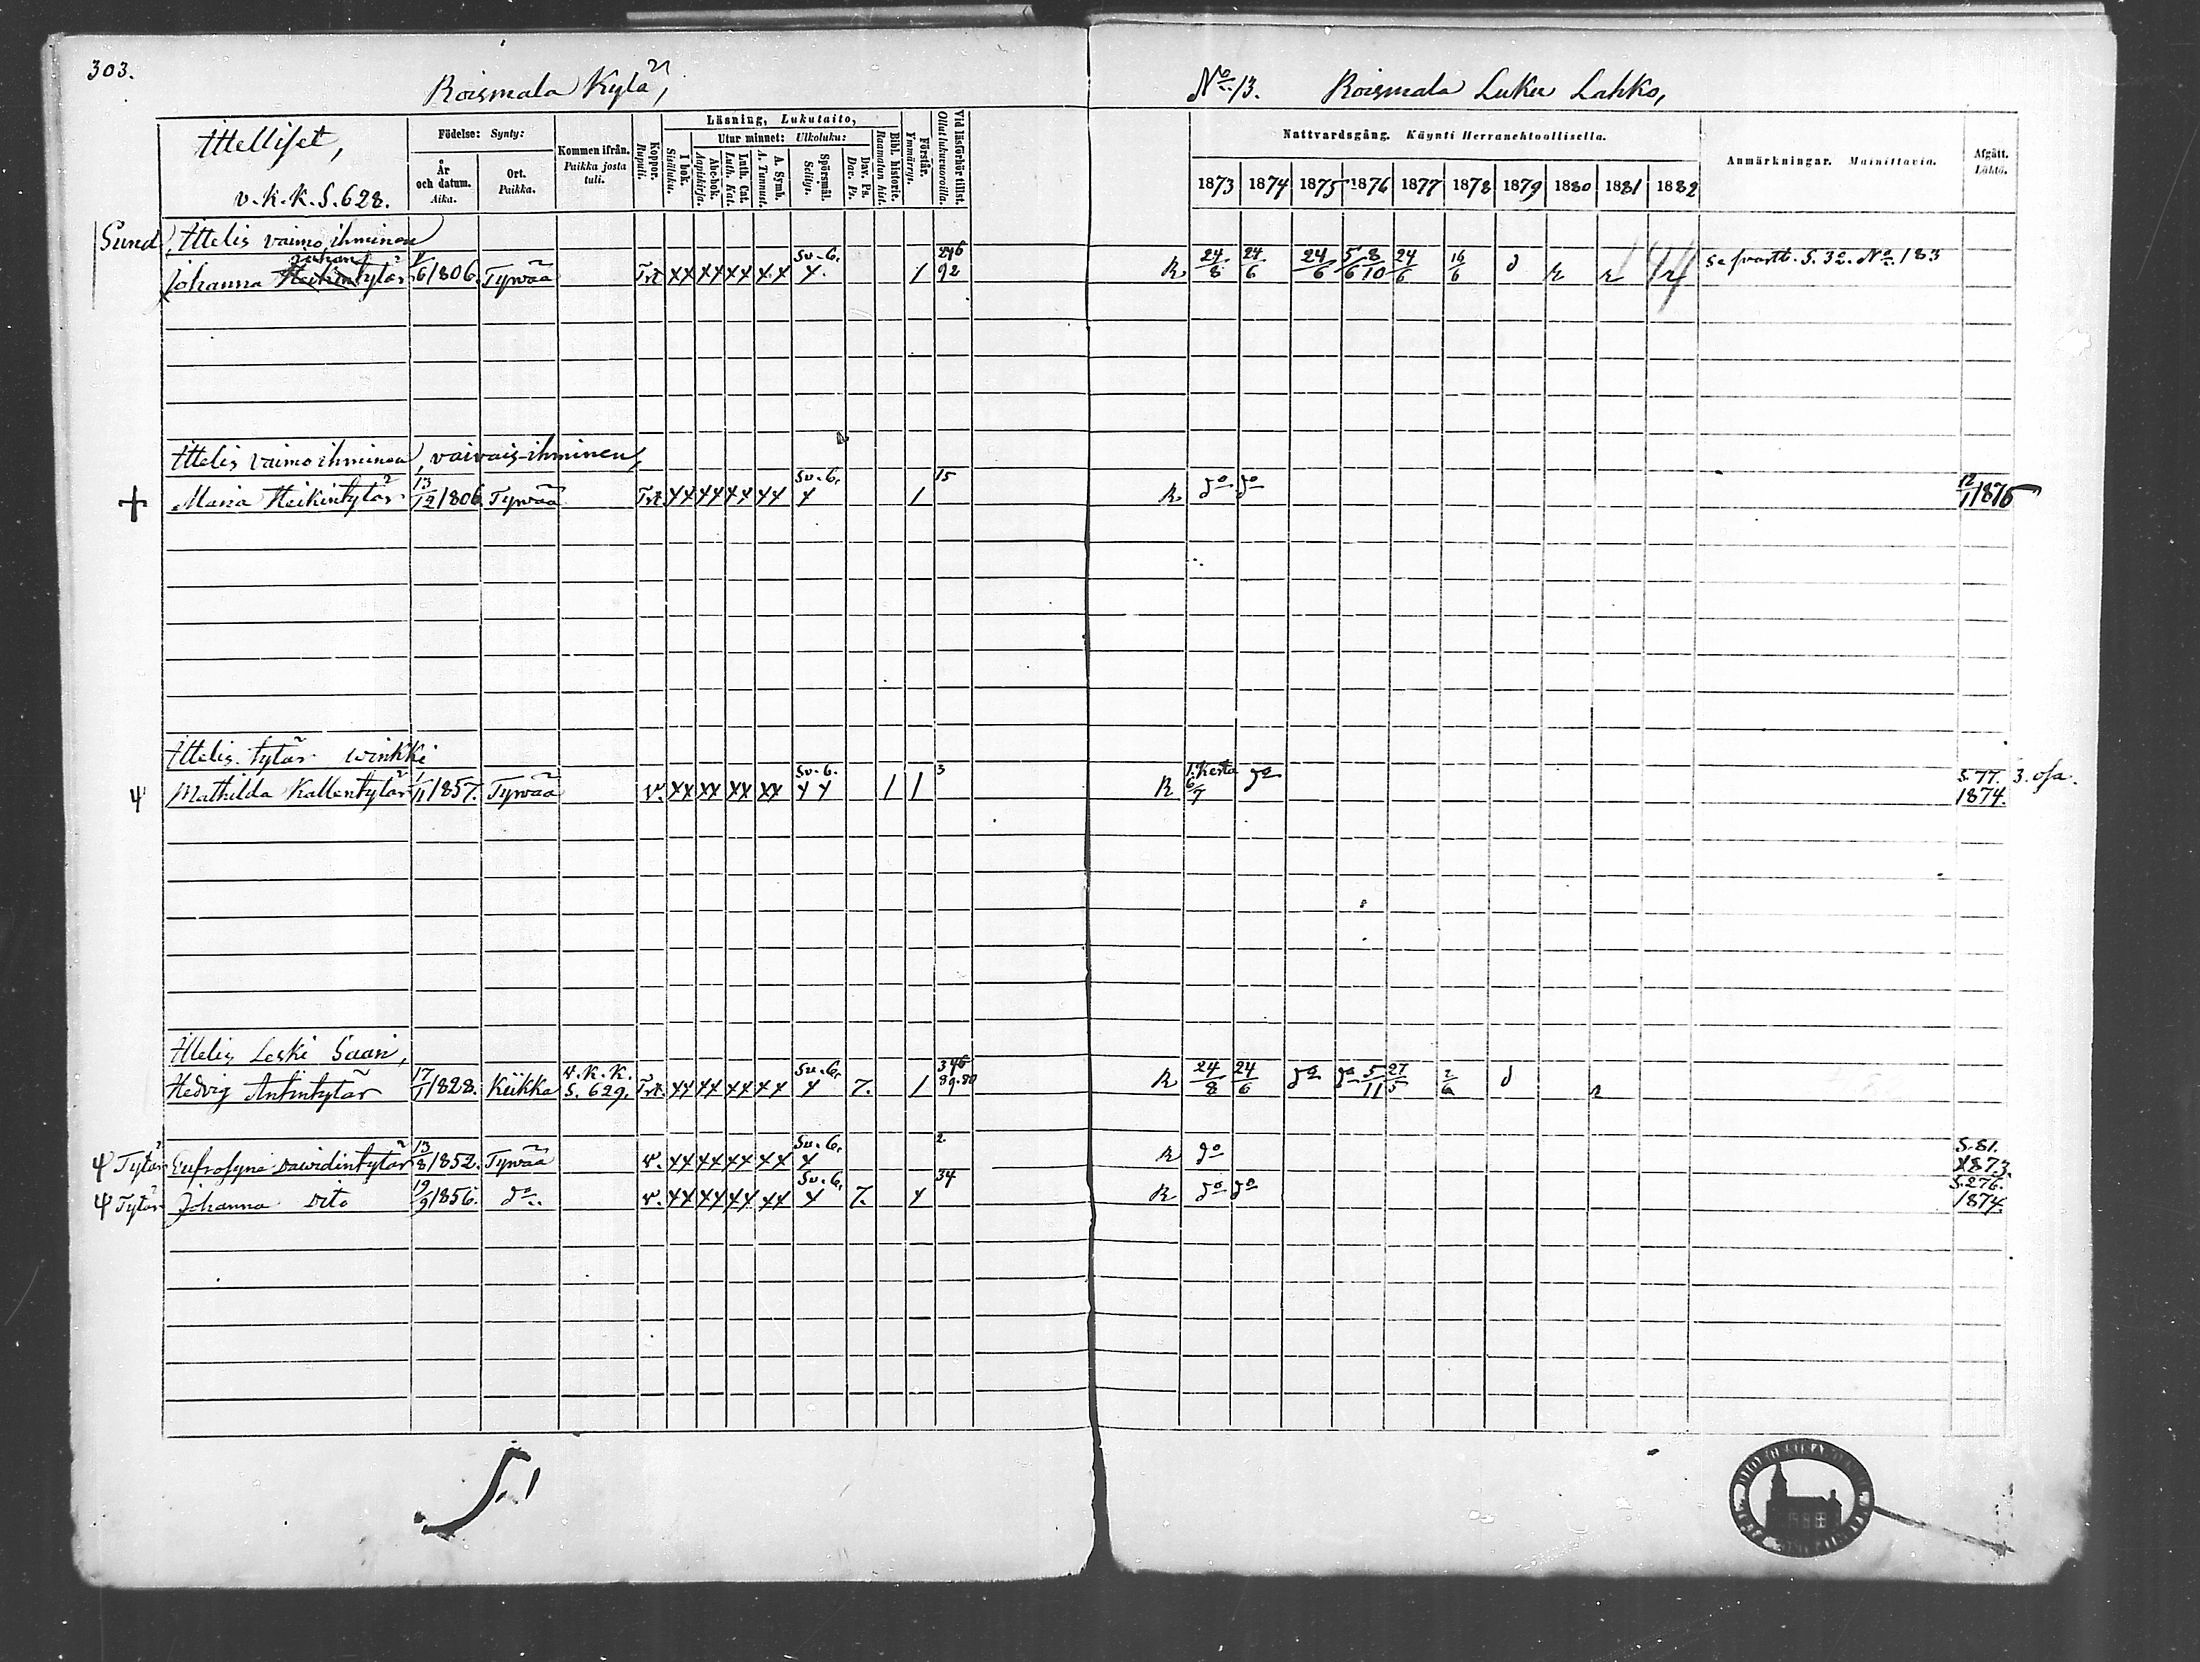 303.
Roismala Kylä,
No 13. Roismala Luku Lahko,
Ittelliset,
v.k.K.S.628.
Födelse: Synty:
År och datum. Aika.
Ort. Paikka.
Kommen ifrån. Paikka josta tuli.
Koppor. Rupuli.
Läsning, Lukutaito,
I bok. Sisäluku.
Utur minnet: Ulkoluku:
Abc-bok. Aapiskirja.
Luth. Cat. Luth. Kat.
A. Symb. A. Tunnust.
Spörsmål. Selitys.
Dav. Ps. Dav. Ps.
Bibl. historie. Raamatun hist.
Förstår. Ymmärrys.
Vid läsförhör tillst. Ollut lukuvuoroilla.
Nattvardsgång. Käynti Herranehtoollisella.
1873 1874 1875 1876 1877 1878 1879 1880 1881 1882
Anmärkningar. Mainittavia.
Afgått. Lähtö.
Sund, Ittelis vaimo ihminen
Johan
Johanna Heikintytär /6 1806. Tyrwää Trt XX XX XX XX Sv-6. X. 1 92 R 24/8 24/6 24/6 5/6 8/10 24/6 16/6 S. 32. No 183
Ittelis vaimo ihminen, vaivais-ihminen,
+ Maria Heikintytär 13/12 1806. Tyrwää Trt XX XX XX XX Sv-6. X 1 15 R do do 12/1 1875
Ittelis tytär winkki
Mathilda Kallentytär 1/11 1857. Tyrwää v. XX XX XX XX Sv-6. XX 1 1 3 R 1. Kerta 6/7 do S. 77. 1874. 3. osa.
Ittelis Leski Saari,
Hedvig Antintytär 17/1 1828. Kiikka v.K.K. S. 629. Trt. XX XX XX XX Sv-6. X 7. 1 346 89.80 R 24/8 24/6 do do 5/11 27/5 2/6
Tytär Eufrosyna Dawidintytär 13/8 1852. Tyrwää v. XX XX XX XX Sv-6. X 2 R do S. 81. 1873.
Tytär Johanna Dito 19/9 1856. do.. v. XX XX XX XX Sv-6. X 7. X 34 R do do S. 276. 1874.